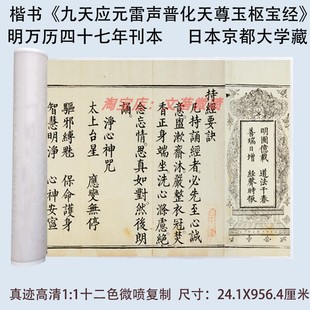 楷书《九天应元雷声普化天尊玉枢宝经》
明万历四十七年刊本 日本京都大学藏
道法千春
善瑞日增
持經要訣
凡持誦經者必先至心誠
意盥漱齋沐嚴整衣冠焚
香正身端坐洗心滌慮絕
念忘情思真如對然後朗
誦
淨心神咒
太上台星 應變無停
驅邪縛魅 保命護身
智慧明淨 心神安寧
淘宝店：
真迹高清1:1十二色微喷复制 尺寸：24.1X956.4厘米